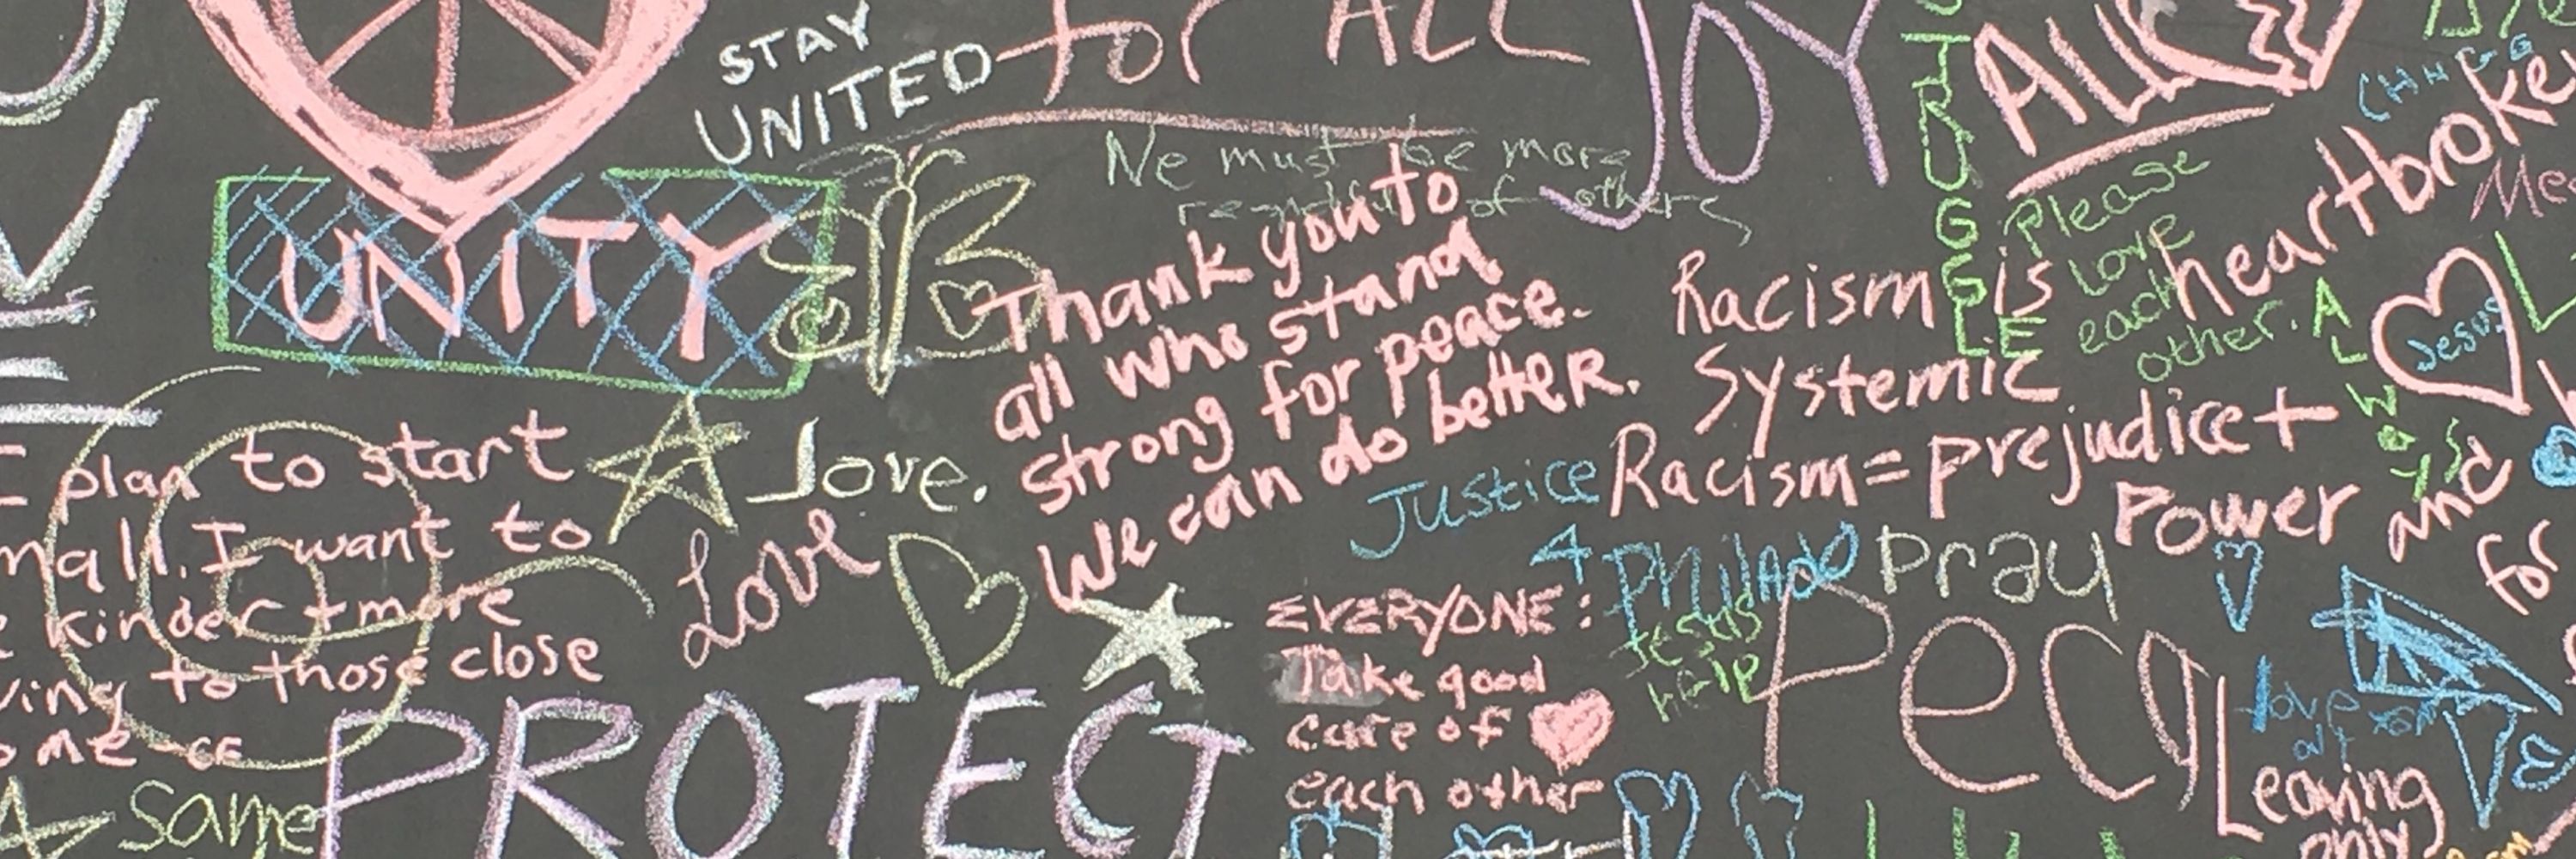 STAY
UNITED
for ALL
JOY
STRUGGLE
ALL
CHANGE
UNITY
We must be more
of others
Thank you to
all who stand
strong for peace.
We can do better.
Please
Love
each
other.
heartbroken
Racism is
Systemic
Racism = prejudice +
Power
ALWAYS
Jesus
and
for
I plan to start
small. I want to
be kinder + more
to those close
to me -CE
Love.
Love
Justice
4 Philado
pray
Jesus
help
Peca
EVERYONE:
Take good
care of
each other
PROTECT
Same
love
Leaving
only